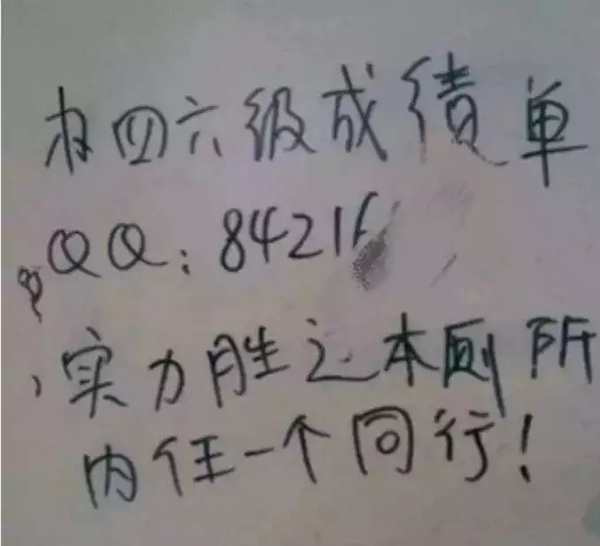 办四六级成绩单
QQ：8421
实力胜过本厕所
内任一个同行！